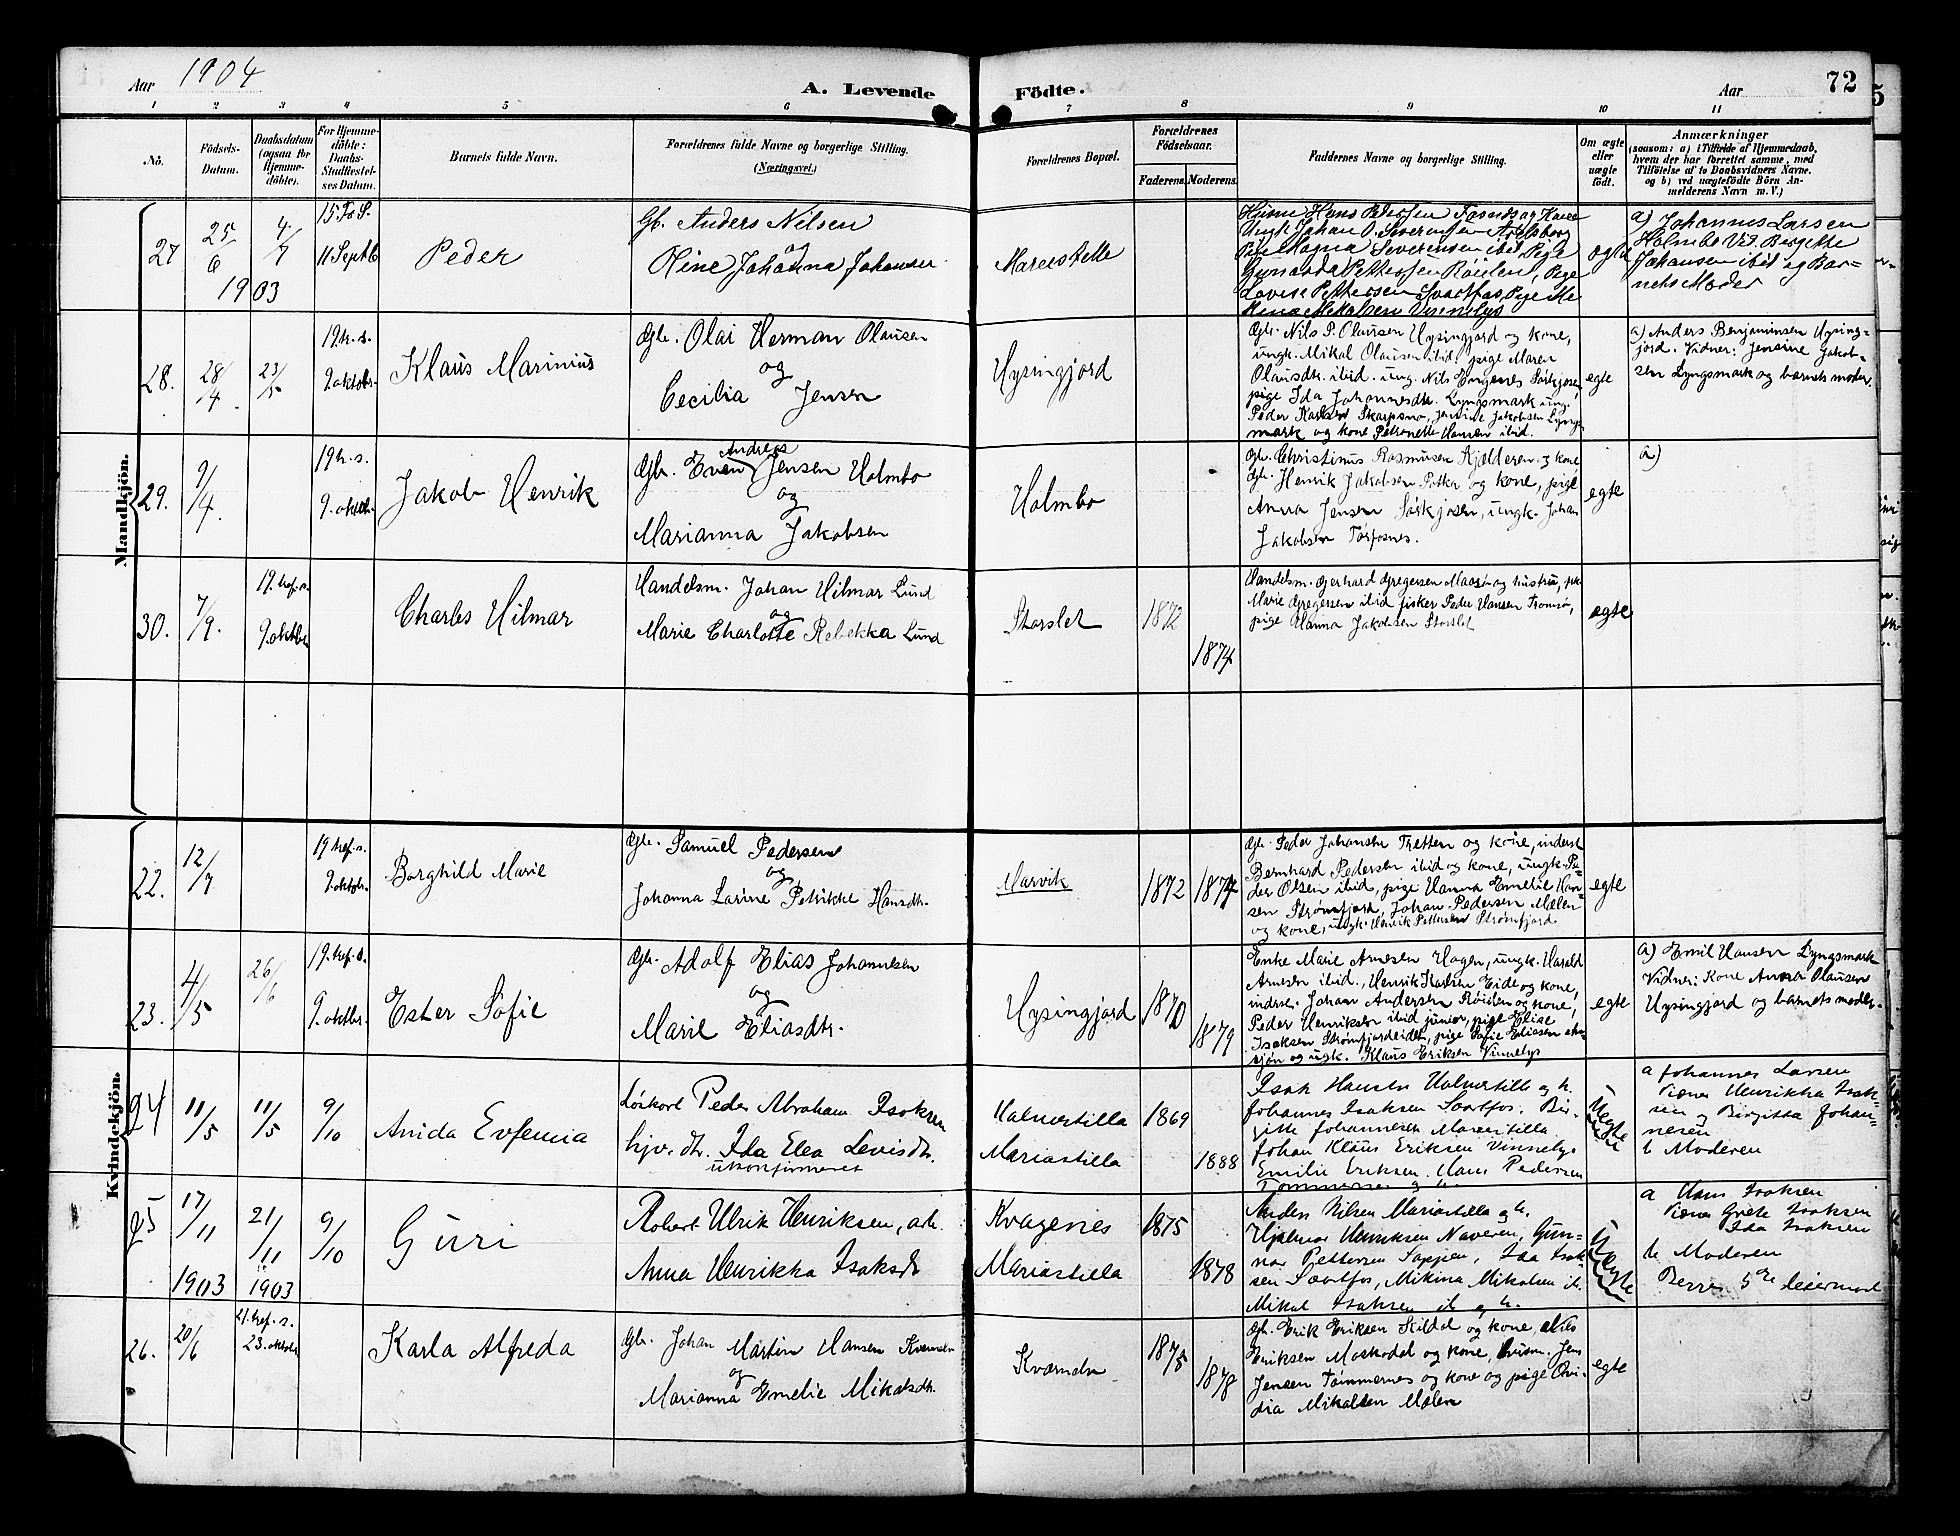 Aar 1904
A. Levende Fødte.
Aar 72
1 2 3 4 5 6 7 8 9 10 11
No.
Födsels-
Datum.
Daabsdatum
(ogsaa for
Hjemme-
döbte).
For Hjemme-
döbte:
Daabs-
Stadfæstel-
ses Datum.
Barnets fulde Navn.
Forældrenes fulde Navne og borgerlige Stilling.
(Næringsvei.)
Forældrenes Bopæl.
Forældrenes
Födselsaar.
Faderens. Moderens.
Faddernes Navne og borgerlige Stilling.
Om ægte
eller
uægte
födt.
Anmærkninger
(saasom: a) i Tilfælde af Hjemmedaab,
hvem der har forrettet samme, med
Tilföielse af to Daabsvidners Navne.
og b) ved uægtefödte Börn An-
melderens Navn m. V.)
Mandkjön.
27
25/6
4/7
1903
15 S.
11 Septb
Peder
Gb. Anders Nilsen
og
Oline Johanna Johanser
Mareestelle
Pige Magna Severinsen ibid Pige
egte
a) Johannes Larsen
Holmbo Vit. Bergette
Johansen ibid og Bar-
nets Moder
28.
28/4.
23/5
19. tr. s.
9 oktobr.
Klaus Marinius
Gbr. Olai Herman Olausen
og
Cecilia Jensen
Uysingjord
Gbr. Nils P. Olausen Uysingjord og kone,
ungk. Mikal Olausen ibid, pige Maren
Olausdtr. ibid. ung. Nils Engenes Sørkjosen,
pige Ida Johannesdtr. Lyngsmark ung.
Peder Karlsen Skarpsno, Jensine Jakobsen Lyngs-
mark og kone Petronette Hansen ibid.
egte
a) Anders Benjaminsen Uysing-
jord. Vidner: Jensine Jakob-
sen Lyngsmark og barnets moder.
29.
9/4.
19 tr. s.
9. oktbr.
Jakob Henrik
Gbr. Even Andreas Jensen Holmbo
og
Marianna Jakobsen
Holmbo
Gbr. Christinus Rasmusen Kjelderen og kone
Gbr. Henrik Jakobsen Potka og kone, pige
Anna Jensen Sørkjosen, ungk. Johan
Jakobsen Tørfosnes.
egte
a)
30.
7/9.
19. tref. s.
9. oktbr
Charles Hilmar
Handelsm. Johan Hilmar Lund
og
Marie Charlotte Rebekka Lund
Storslet
1872
1874
Handelsm. Gerhard Gregersen Maasø og hustru, pk.
Marie Gregersen ibid fisker Peder Hansen Tromsø,
pige Hanna Jakobsen Storslet
egte
Kvindekjön.
22.
12/7
19 tref. s.
9 oktobr.
Borghild Marie
Gbr. Samuel Pedersen
og
Johanna Larine Petrikke Hansdtr.
Marvik
1872
1874
Gbr. Peder Johansen Tretten og kone, inderst
Bernhard Pedersen ibid og kone, ungk. Pe-
der Olsen ibid, pige Hanna Emelie Han-
sen Strømfjord, Johan Pedersen Mælen
og kone, ungk. Henrik Pettersen Strømfjord
egte
23.
4/5
26/6
19. tref. s.
9. oktbr.
Ester Sofie
Gbr. Adolf Elias Johannesen
og
Marie Eliasdtr.
Uysingjord
1870
1879
Enke Marie Arnesen Hagen, ungk. Harald
Arnesen ibid., Henrik Karlsen Eide og kone,
inderst. Johan Andersen Røielen og kone,
Peder Henriksen ibid junior, pige Elise
Isaksen Strømfjordeidet, pige Sofie Eliasen
og ugk. Klaus Eriksen Vinnelys
egte
a) Emil Hansen Lyngsmark
Vidner: Kone Anna Olausen
Uysingjord og barnets moder.
24
11/5
11/5
9/10
Anida Evfemia
Løskarl Peder Abraham Isaksen
hjv. dtr. Ida Elea Levisdtr.
ukonfirmeret
Halvertilla
Mariastilla
1869
1888
Isak Hansen Halvertilla og h.
Johannes Isaksen Svartfos. Bir-
gitte Johannesen Mareistilla
Johan Klaus Eriksen Vinnelys
Emilie Eriksen. Hans Pedersen
Tømmernes og h.
Uegte
a Johannes Larsen
Viener Henrikka Isak-
sen og Birgitta Johan-
nesen
b Moderen
25
17/11
1903
21/11
1903
9/10
Guri
Robert Ulrik Henriksen, arb.
Anna Henrikka Isaksdt
Kvagenes
Mariastilla
1875
1878
Anders Nilsen Mariastilla og h.
Hjalmar Henriksen Naveren, Gun-
nar Pettersen Sappen, Ida Isak-
sen Svartfos, Mikina Mikalsen ib.
Mikal Isaksen ib og h.
Uegte
a Hans Isaksen
Viener Grete Isaksen
Ida Isaksen
b Moderen
5te leiermaal
26.
20/6
21. tref. s.
23. oktobr
Karla Alfreda
Gbr. Johan Martin Hansen Kvænndn
og
Marianna Emelie Mikalsdtr.
Kværndn
1875
1878
Gbr. Erik Eriksen Kildal og kone, Nils
Eriksen Moskodal og kone, husm. Jens
Jensen Tømmernes og kone og pige Ovi-
dia Mikalsen Mælen
egte